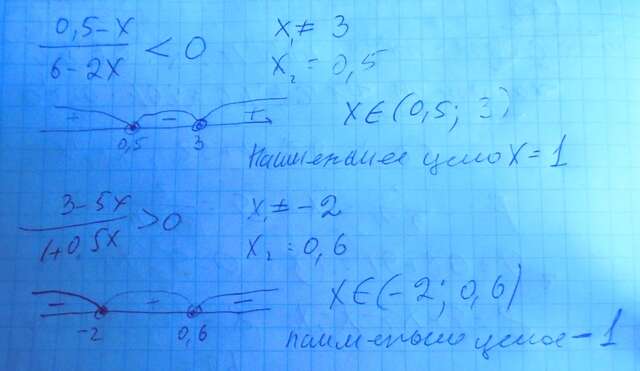 (0,5-x)/(6-2x) < 0
x₁ ≠ 3
x₂ = 0,5
+ - +
0,5 3
x∈(0,5; 3)
Наименшее цело x=1
(3-5x)/(1+0,5x) > 0
x₁ ≠ -2
x₂ = 0,6
- + -
-2 0,6
x∈(-2; 0,6)
наименьшо целое -1